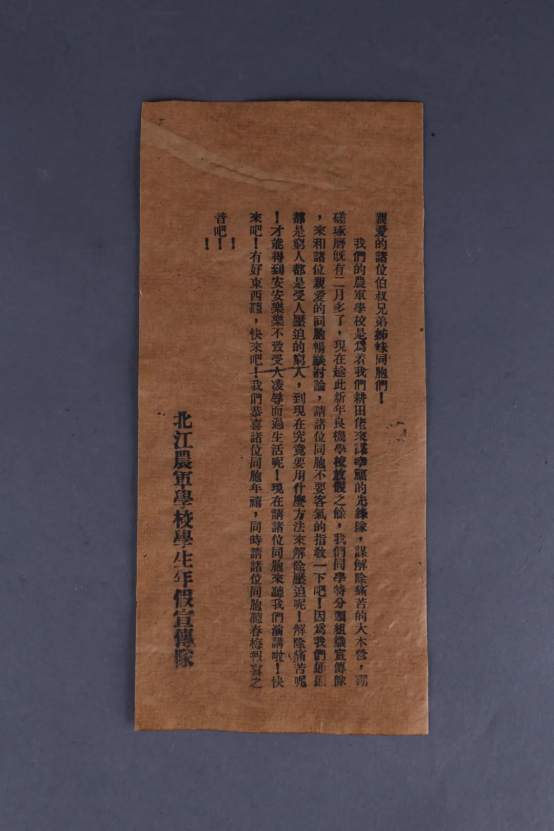 親愛的諸位伯叔兄弟姊妹同胞們！
我們的農軍學校是爲着我們耕田佬來謀幸福的先鋒隊，謀解除痛苦的大本營，
磋琢磨旣有二月多了，現在趁此新年良機學校放假之餘，我們同學特分頭組織宣傳隊
，來和諸位親愛的同胞暢談討論，請諸位同胞不要客氣的指敎一下吧！因爲我們通通
都是窮人都是受人壓迫的窮人，到現在究竟要用什麼方法來解除壓迫呢！解除痛苦呢
！才能得到安安樂樂不致受人凌辱而過生活呢！現在請諸位同胞來聽我們演講啦！快
來吧！有好東西聽，快來吧！我們恭喜諸位同胞年禧，同時請諸位同胞聽春梅報喜之
音吧！！！
北江農軍學校學生年假宣傳隊